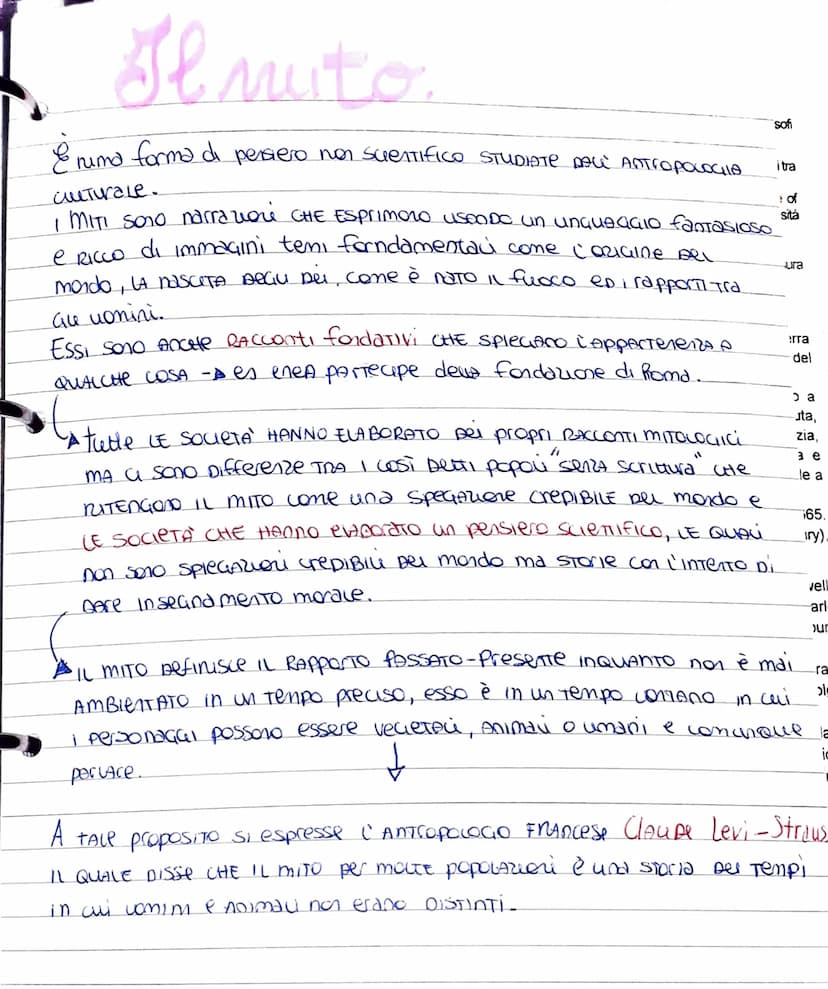 Il mito.
È una forma di pensiero non scientifico STUDIATE DALL' ANTROPOLOGIA
culturale.
I MITI SONO narrazioni CHE ESPRIMONO USANDO UN LINGUAGGIO fantasioso
e RICCO di immagini temi fondamentali come l'ORIGINE DEL
MONDO, LA NASCITA DEGLI DEI, come è NATO IL fuoco ED i rapporti TRA
GLI uomini.
ESSI SONO ANCHE RACCONTI fondativi CHE SPIEGANO L'APPARTENENZA A
QUALCHE COSA → es ENEA PARTECIPE della fondazione di Roma.
tutte LE SOCIETÀ HANNO ELABORATO DEI propri RACCONTI MITOLOGICI
MA CI SONO DIFFERENZE TRA I COSÌ DETTI popoli "SENZA SCRITTURA" CHE
RITENGONO IL MITO come una SPEGAZIONE CREDIBILE DEL mondo e
LE SOCIETÀ CHE HANNO ELABORATO un pensiero SCIENTIFICO, LE QUALI
non sono SPIEGAZIONI CREDIBILI DEL mondo ma STORIE con L'INTENTO DI
DARE INSEGNAMENTO morale.
IL MITO DEFINISCE IL RAPPORTO PASSATO-Presente INQUANTO non è mai
AMBIENTATO in un tempo preciso, esso è in un tempo lontano in cui
i PERSONAGGI possono essere VEGETALI, ANIMALI o umani e comunque
parlare.
A TALE proposito si espresse L'ANTROPOLOGO FRANCESE CLAUDE Levi-Straus
IL QUALE DISSE CHE IL MITO per molte popolazioni è una storia DEI TEMPI
in cui uomini e ANIMALI non erano DISTINTI.
sofi
tra
of
sità
ura
erra
del
a
uta,
zia,
e
le a
65.
ry).
vell
arl
our
ra